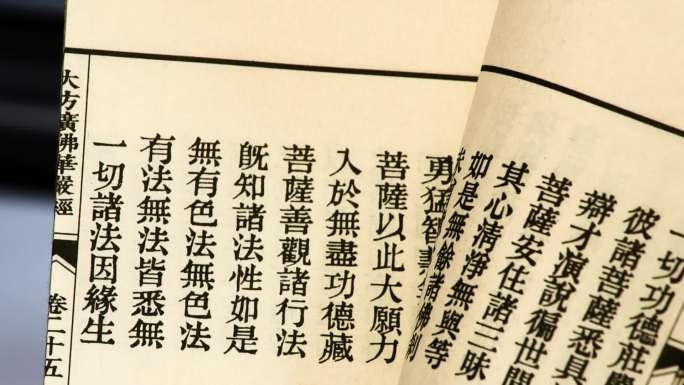 一切功德莊
彼諸菩薩悉具
辯才演說徧世間
菩薩安住諸三昧
其心清淨無與等
如是無餘諸佛剎
勇猛智
菩薩以此大願力
入於無盡功德藏
菩薩善觀諸行法
旣知諸法性如是
無有色法無色法
有法無法皆悉無
一切諸法因緣生
大方廣佛華嚴經
卷二十五